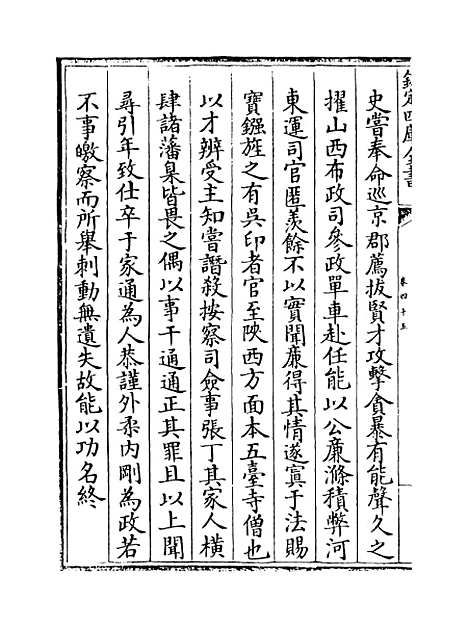 欽定四庫全書
卷四十五
史嘗奉命巡京郡薦拔賢才攻擊貪暴有能聲久之
擢山西布政司參政單車赴任能以公廉滌積弊河
東運司官匿羨餘不以實聞廉得其情遂寘于法賜
寶鏹旌之有吳印者官至陜西方面本五臺寺僧也
以才辨受主知嘗譖殺按察司僉事張丁其家人橫
肆諸藩臬皆畏之偶以事干通通正其罪且以上聞
尋引年致仕卒于家通為人恭謹外柔内剛為政若
不事皦察而所舉刺動無遺失故能以功名終